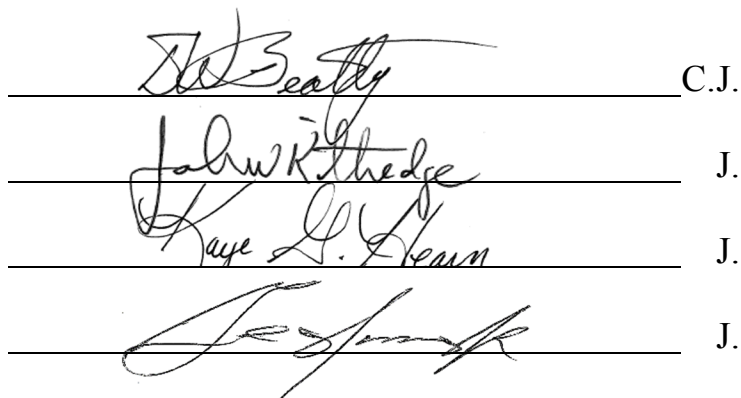 DW Beatty C.J.
John W Kittredge J.
Kaye G. Hearn J.
J.